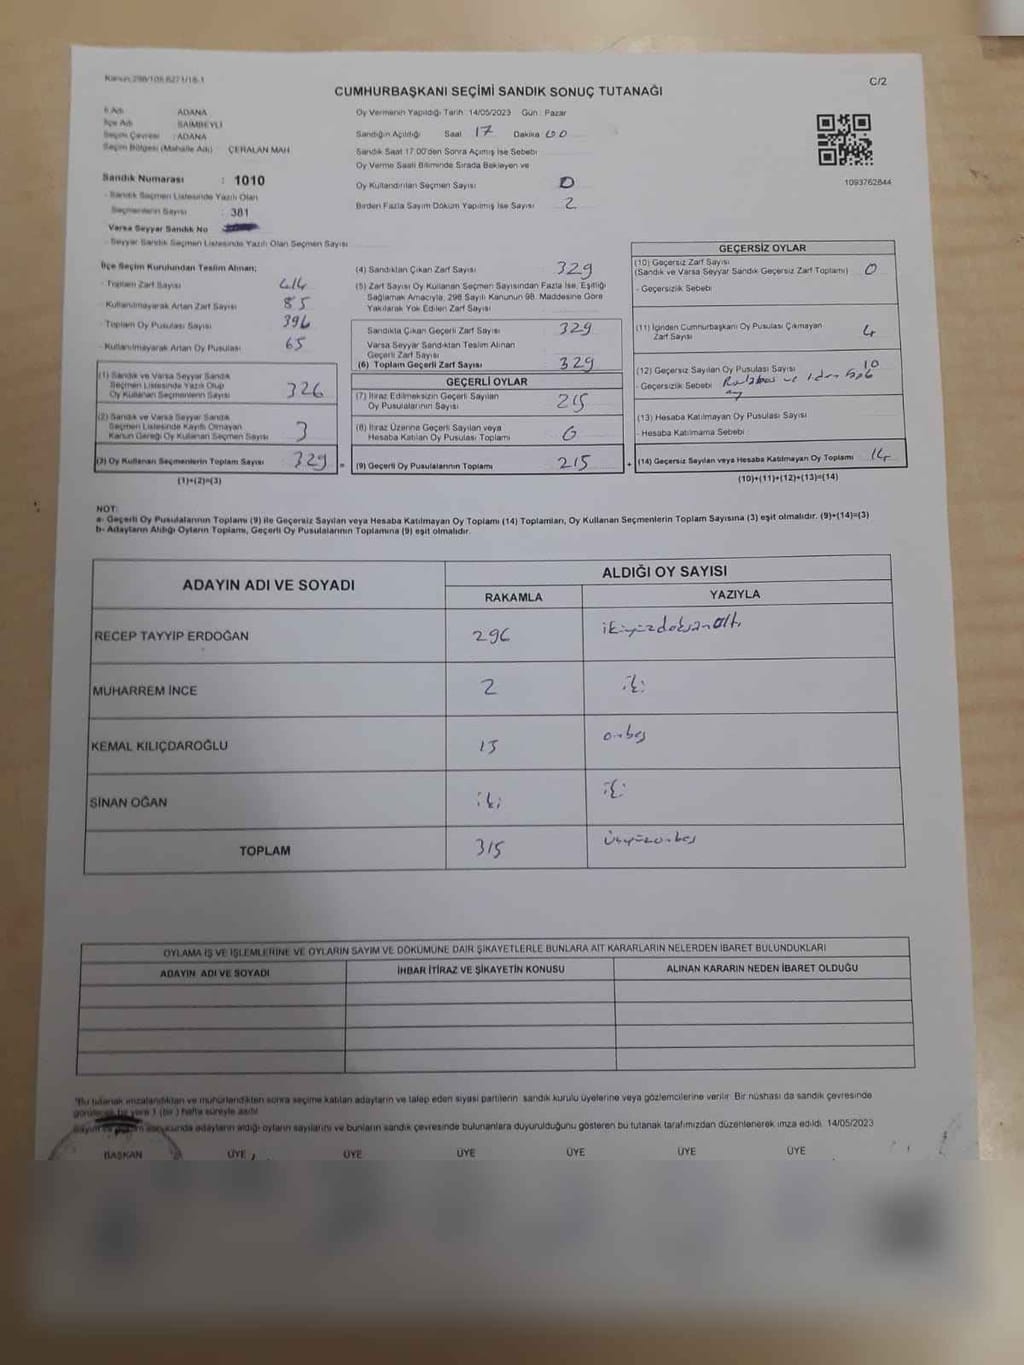 Kanun:298/105 6271/16-1
C/2
CUMHURBAŞKANI SEÇİMİ SANDIK SONUÇ TUTANAĞI
İl Adı ADANA
İlçe Adı SAİMBEYLİ
Seçim Çevresi : ADANA
Seçim Bölgesi (Mahalle Adı) ÇERALAN MAH.
Sandık Numarası : 1010
- Sandık Seçmen Listesinde Yazılı Olan
Seçmenlerin Sayısı : 381
Varsa Seyyar Sandık No
- Seyyar Sandık Seçmen Listesinde Yazılı Olan Seçmen Sayısı
Oy Vermenin Yapıldığı Tarih 14/05/2023 Gün : Pazar
Sandığın Açıldığı Saat 17 Dakika 00
Sandık Saat 17:00'den Sonra Açılmış İse Sebebi
Oy Verme Saati Bitiminde Sırada Bekleyen ve
Oy Kullandırılan Seçmen Sayısı 0
Birden Fazla Sayım Döküm Yapılmış İse Sayısı 2
1093762844
İlçe Seçim Kurulundan Teslim Alınan;
- Toplam Zarf Sayısı 414
- Kullanılmayarak Artan Zarf Sayısı 85
- Toplam Oy Pusulası Sayısı 396
- Kullanılmayarak Artan Oy Pusulası 65
(1) Sandık ve Varsa Seyyar Sandık
Seçmen Listesinde Yazılı Olup
Oy Kullanan Seçmenlerin Sayısı 326
(2) Sandık ve Varsa Seyyar Sandık
Seçmen Listesinde Kayıtlı Olmayan
Kanun Gereği Oy Kullanan Seçmen Sayısı 3
(3) Oy Kullanan Seçmenlerin Toplam Sayısı 329 =
(1)+(2)=(3)
(4) Sandıktan Çıkan Zarf Sayısı 329
(5) Zarf Sayısı Oy Kullanan Seçmen Sayısından Fazla İse, Eşitliği
Sağlamak Amacıyla, 298 Sayılı Kanunun 98. Maddesine Göre
Yakılarak Yok Edilen Zarf Sayısı
Sandıkta Çıkan Geçerli Zarf Sayısı 329
Varsa Seyyar Sandıktan Teslim Alınan
Geçerli Zarf Sayısı
(6) Toplam Geçerli Zarf Sayısı 329
GEÇERLİ OYLAR
(7) İtiraz Edilmeksizin Geçerli Sayılan
Oy Pusulalarının Sayısı 215
(8) İtiraz Üzerine Geçerli Sayılan veya
Hesaba Katılan Oy Pusulası Toplamı
(9) Geçerli Oy Pusulalarının Toplamı 215 +
GEÇERSİZ OYLAR
(10) Geçersiz Zarf Sayısı
(Sandık ve Varsa Seyyar Sandık Geçersiz Zarf Toplamı) 0
- Geçersizlik Sebebi
(11) İçinden Cumhurbaşkanı Oy Pusulası Çıkmayan
Zarf Sayısı 4
(12) Geçersiz Sayılan Oy Pusulası Sayısı 10
- Geçersizlik Sebebi ve 1 den
oy
(13) Hesaba Katılmayan Oy Pusulası Sayısı
- Hesaba Katılmama Sebebi
(14) Geçersiz Sayılan veya Hesaba Katılmayan Oy Toplamı 14
(10)+(11)+(12)+(13)=(14)
NOT:
a- Geçerli Oy Pusulalarının Toplamı (9) ile Geçersiz Sayılan veya Hesaba Katılmayan Oy Toplamı (14) Toplamları, Oy Kullanan Seçmenlerin Toplam Sayısına (3) eşit olmalıdır. (9)+(14)=(3)
b- Adayların Aldığı Oyların Toplamı, Geçerli Oy Pusulalarının Toplamına (9) eşit olmalıdır.
ADAYIN ADI VE SOYADI
ALDIĞI OY SAYISI
RAKAMLA YAZIYLA
RECEP TAYYİP ERDOĞAN 296 ikiyüzdoksanaltı
MUHARREM İNCE 2 iki
KEMAL KILIÇDAROĞLU 15 onbeş
SİNAN OĞAN iki iki
TOPLAM 315 üçyüzonbeş
OYLAMA İŞ VE İŞLEMLERİNE VE OYLARIN SAYIM VE DÖKÜMÜNE DAİR ŞİKAYETLERLE BUNLARA AİT KARARLARIN NELERDEN İBARET BULUNDUKLARI
ADAYIN ADI VE SOYADI İHBAR İTİRAZ VE ŞİKAYETİN KONUSU ALINAN KARARIN NEDEN İBARET OLDUĞU
*Bu tutanak imzalandıktan ve mühürlendikten sonra seçime katılan adayların ve talep eden siyasi partilerin sandık kurulu üyelerine veya gözlemcilerine verilir. Bir nüshası da sandık çevresinde
görülecek bir yere 1 (bir) hafta süreyle asılır.
sonucunda adayların aldığı oyların sayılarını ve bunların sandık çevresinde bulunanlara duyurulduğunu gösteren bu tutanak tarafımızdan düzenlenerek imza edildi. 14/05/2023
BAŞKAN ÜYE ÜYE ÜYE ÜYE ÜYE ÜYE